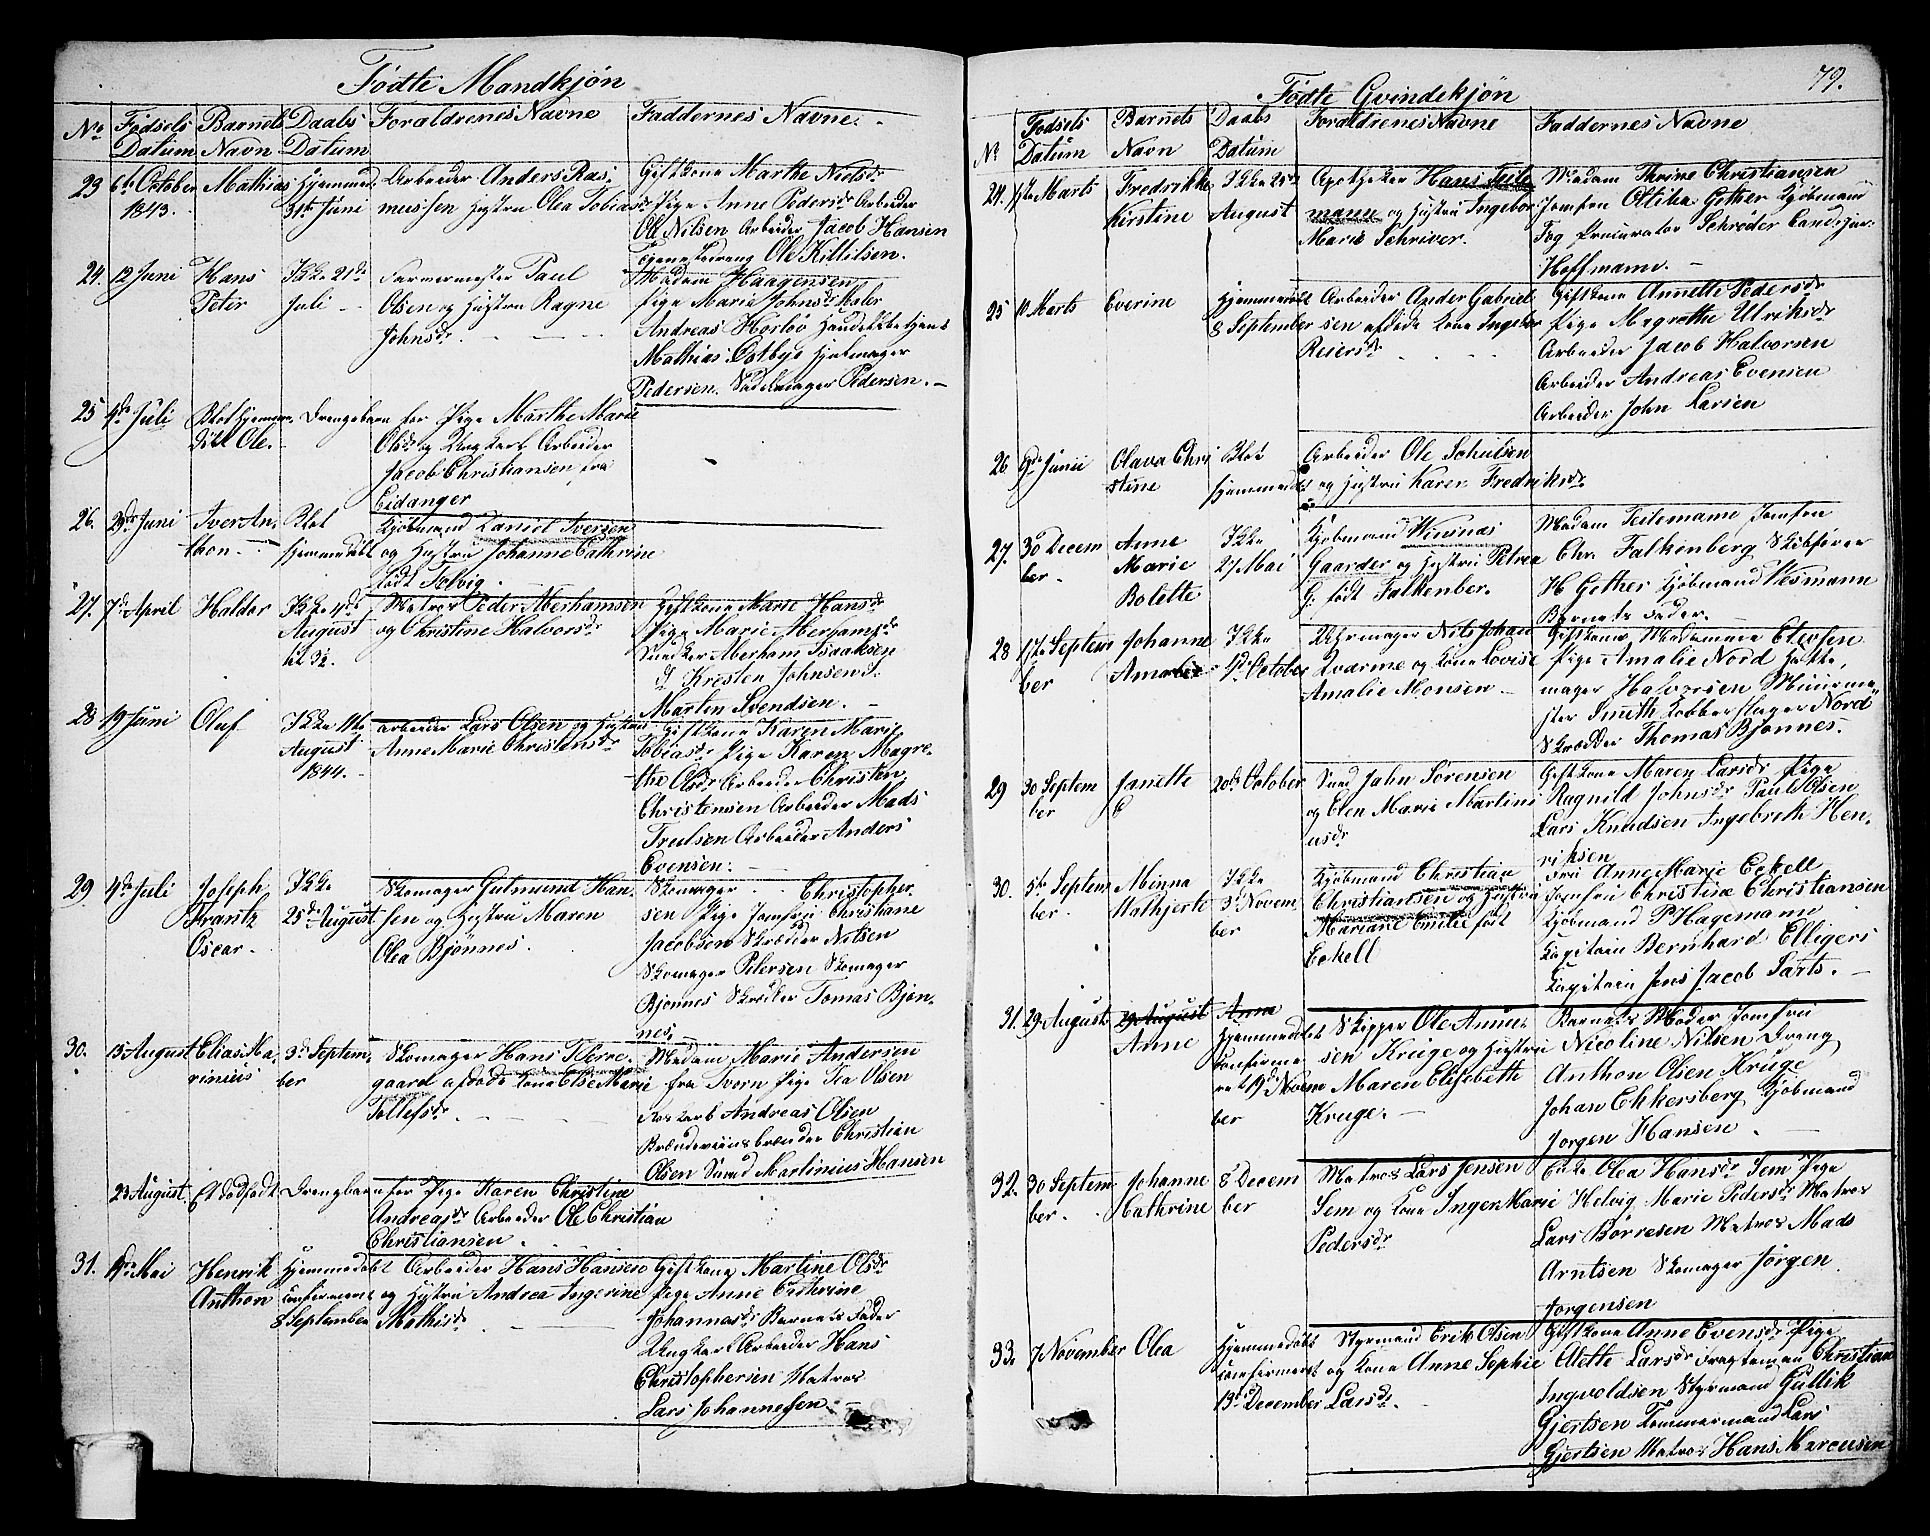 Fødte Mandkjøn
No Fødsels Datum Barnets Navn Daabs Datum Forældrenes Navne Faddernes Navne.
23 6te October 1843. Mathias Hjemmed. 31te Juni
Arbeider Anders Ras-
mussen Hustru Olea Tobiasdr
Giftkone Marthe Nielsdr
Pige Anne Pedersdr Arbeider
Ole Nilsen Arbeider Jacob Hansen
Tjenestedreng Ole Kittilsen.
24. 12 Juni Hans Peter Ikke 21de Juli
Farvermester Paul
Olsen og Hustru Ragne
Johnsdr.
Madam Haagensen
Pige Marie Johnsdr Maler
Andreas Horlov Handelsbetjent
Mathias Ostbye Hjulmager
Pedersen. Sadelmager Pedersen.
25 4de Juli Blot hjemme-
døbt Ole. Drengebarn for Pige Marthe Marie
Olsdr og Ungkarl Arbeider
Jacob Christiansen fra
Eidanger
26. 23de Juni Iver An-
thon. Blot
hjemmedøbt
Kjøbmand Daniel Iversen
og Hustru Johanne Cathrine
født Solvig.
27. 7de April Haldor Ikke 4de
August
Matros Peder Aberhamsen
og Christine Halvorsdr
Giftkone Marie Hansdr
Pige Marie Aberhamsdr
Snedker Aberham Isaaksen
Kristen Johnsen
Martin Svendsen.
28 19 Juni Oluf Ikke 11te
August
1844.
arbeider Lars Olsen og Hustru
Anne Marie Christensdr
Giftkone Karen Marie
Tobiasdr Pige Karen Magre-
the Olsdr Arbeider Christen
Christensen Arbeider Mads
Truulsen Arbeider Anders
Evensen.
29 4de Juli Joseph
Frantz
Oscar. Ikke
25de August
Skomager Gulmund Han-
sen og Hustru Maren
Olea Bjønnes.
Skomager Christopher
sen Pige Jomfru Christiane
Jacobsen Skræder Nilsen
Skomager Petersen Skomager
Bjonnes Skræder Tomas Bjøn-
nes.
30. 15 August Elias Ma-
rinius 3de Septem-
ber
Skomager Hans Bierre-
gaard afdøde Kone Else Marie
Tollefsdr.
Madam Marie Andersen
fra Tvorn Pige Tea Olsen
Andreas Olsen
Brændeviinsbrænder Christian
Olsen Svend Martinius Hansen
23 August. Et dødfødt Drengebarn for Pige Karen Christine
Andreasdr Arbeider Ole Christian
Christiansen.
31. Mai Henrik
Anthon Hjemmedøbt
confirmeret
8 September
Arbeider Hans Hansen
og Hustru Andrea Ingerine
Mathisdr
Giftkone Martine Olsdr
Pige Anne Cathrine
Johannasdr Barnets Fader
Ungkarl Arbeider Hans
Christophersen Matros
Lars Johannesen.
79.
Fødte Qvindekjøn
No Fødsels Datum Barnets Navn Daabs Datum Forældrenes Navne Faddernes Navne
24. Marts Fredrikke
Kirstine Ikke 25de
August
Apotheker Hans Teile-
mann og Hustru Ingebor
Marie Schriver.
Madam Thrine Christiansen
Jomfru Otilia Gether Kjøbmand
Fog Procurator Schrøder Cand. jur.
Hoffmann.
25 10 Marts Everine Hjemmedøbt
8 September
Arbeider Ander Gabriel
sen afdøde Kone Ingebor
Reiersdr
Giftkone Annette Pedersdr
Pige Magrethe Ulriksdr
Arbeider Jacob Halvorsen
Arbeider Andreas Evensen
Arbeider John Larsen
26 9de Junii Olava Chri
stine Blot
hjemmedøbt
Arbeider Ole Schulsen
og Hustru Karen Fredriksdr
27. 30 Decem
ber. Anne
Marie
Bolette Ikke
27 Mai
Kjøbmand Winsnas
Gaarder og Hustru Petrea
G: født Falkenber.
Madam Teilemann Jomfru
Chr. Falkenberg Skibsfører
H Gether Kjøbmand Wesmann
Barnets Fader.
28 17de Septem
ber Johanne
Amalie Ikke
1de October
Uhrmager Nils Johan
Qværme og Kone Lovise
Amalie Monsen
Giftkone Madame Ellevsen
Pige Amalie Nord Hatte-
mager Halvorsen Muurme-
ster Smith Kobberslager Nord
Skrædder Thomas Bjonnes.
29 30 Septem
ber Janette 20de October
Svend Jahn Sorensen
og Elen Marie Martini
usdr
Giftkone Maren Larsdr Pige
Ragnild Johnsdr Paul Olsen
Lars Knudsen Ingebreth Hen-
riksen
30. 5te Septem
ber. Minna
Hathjerte Ikke
3 Novem
ber
Kjøbmand Christian
Christiansen og Hustru
Mariane Emilie født
Eckell
Fru Anne Marie Eckell
Jomfru Christine Christiansen
Kjøbmand P Hagemann
Kapitain Bernhard Elligers
Kapitain Jens Jacob Parts.
31. 29 August 29 August
Anne Anne
Hjemmedøbt
confirme
ret 19de Novem
ber
Skipper Ole Amun-
sen Kruge og Hustru
Maren Elisebeth
Kruge.
Barnets Moder Jomfru
Nicoline Nilsen Dreng
Anthon Olsen Kruge
Johan Ekkersberg Kjøbmand
Jorgen Hansen.
32. 30 Septem
ber. Johanne
Cathrine 8 Decem
ber
Matros Lars Jensen
Sem og Kone Ingen Marie
Pedersdr
Enke Olea Hansdr Sem Pige
Helvig Marie Pedersdr Matros
Lars Børresen Matros Mads
Arntsen Skomager Jörgen
Jorgensen
33. 7 November Olea Hjemmedøbt
confirmeret
13de December
Styrmand Erik Olsen
og Kone Anne Sophie
Larsdr.
Giftkone Anne Evensdr Pige
Alette Larsdr Fragtemand Christian
Ingvoldsen Styrmand Gullik
Gjertsen Tømmermand Lars
Gjertsen Matros Hans Marcusen